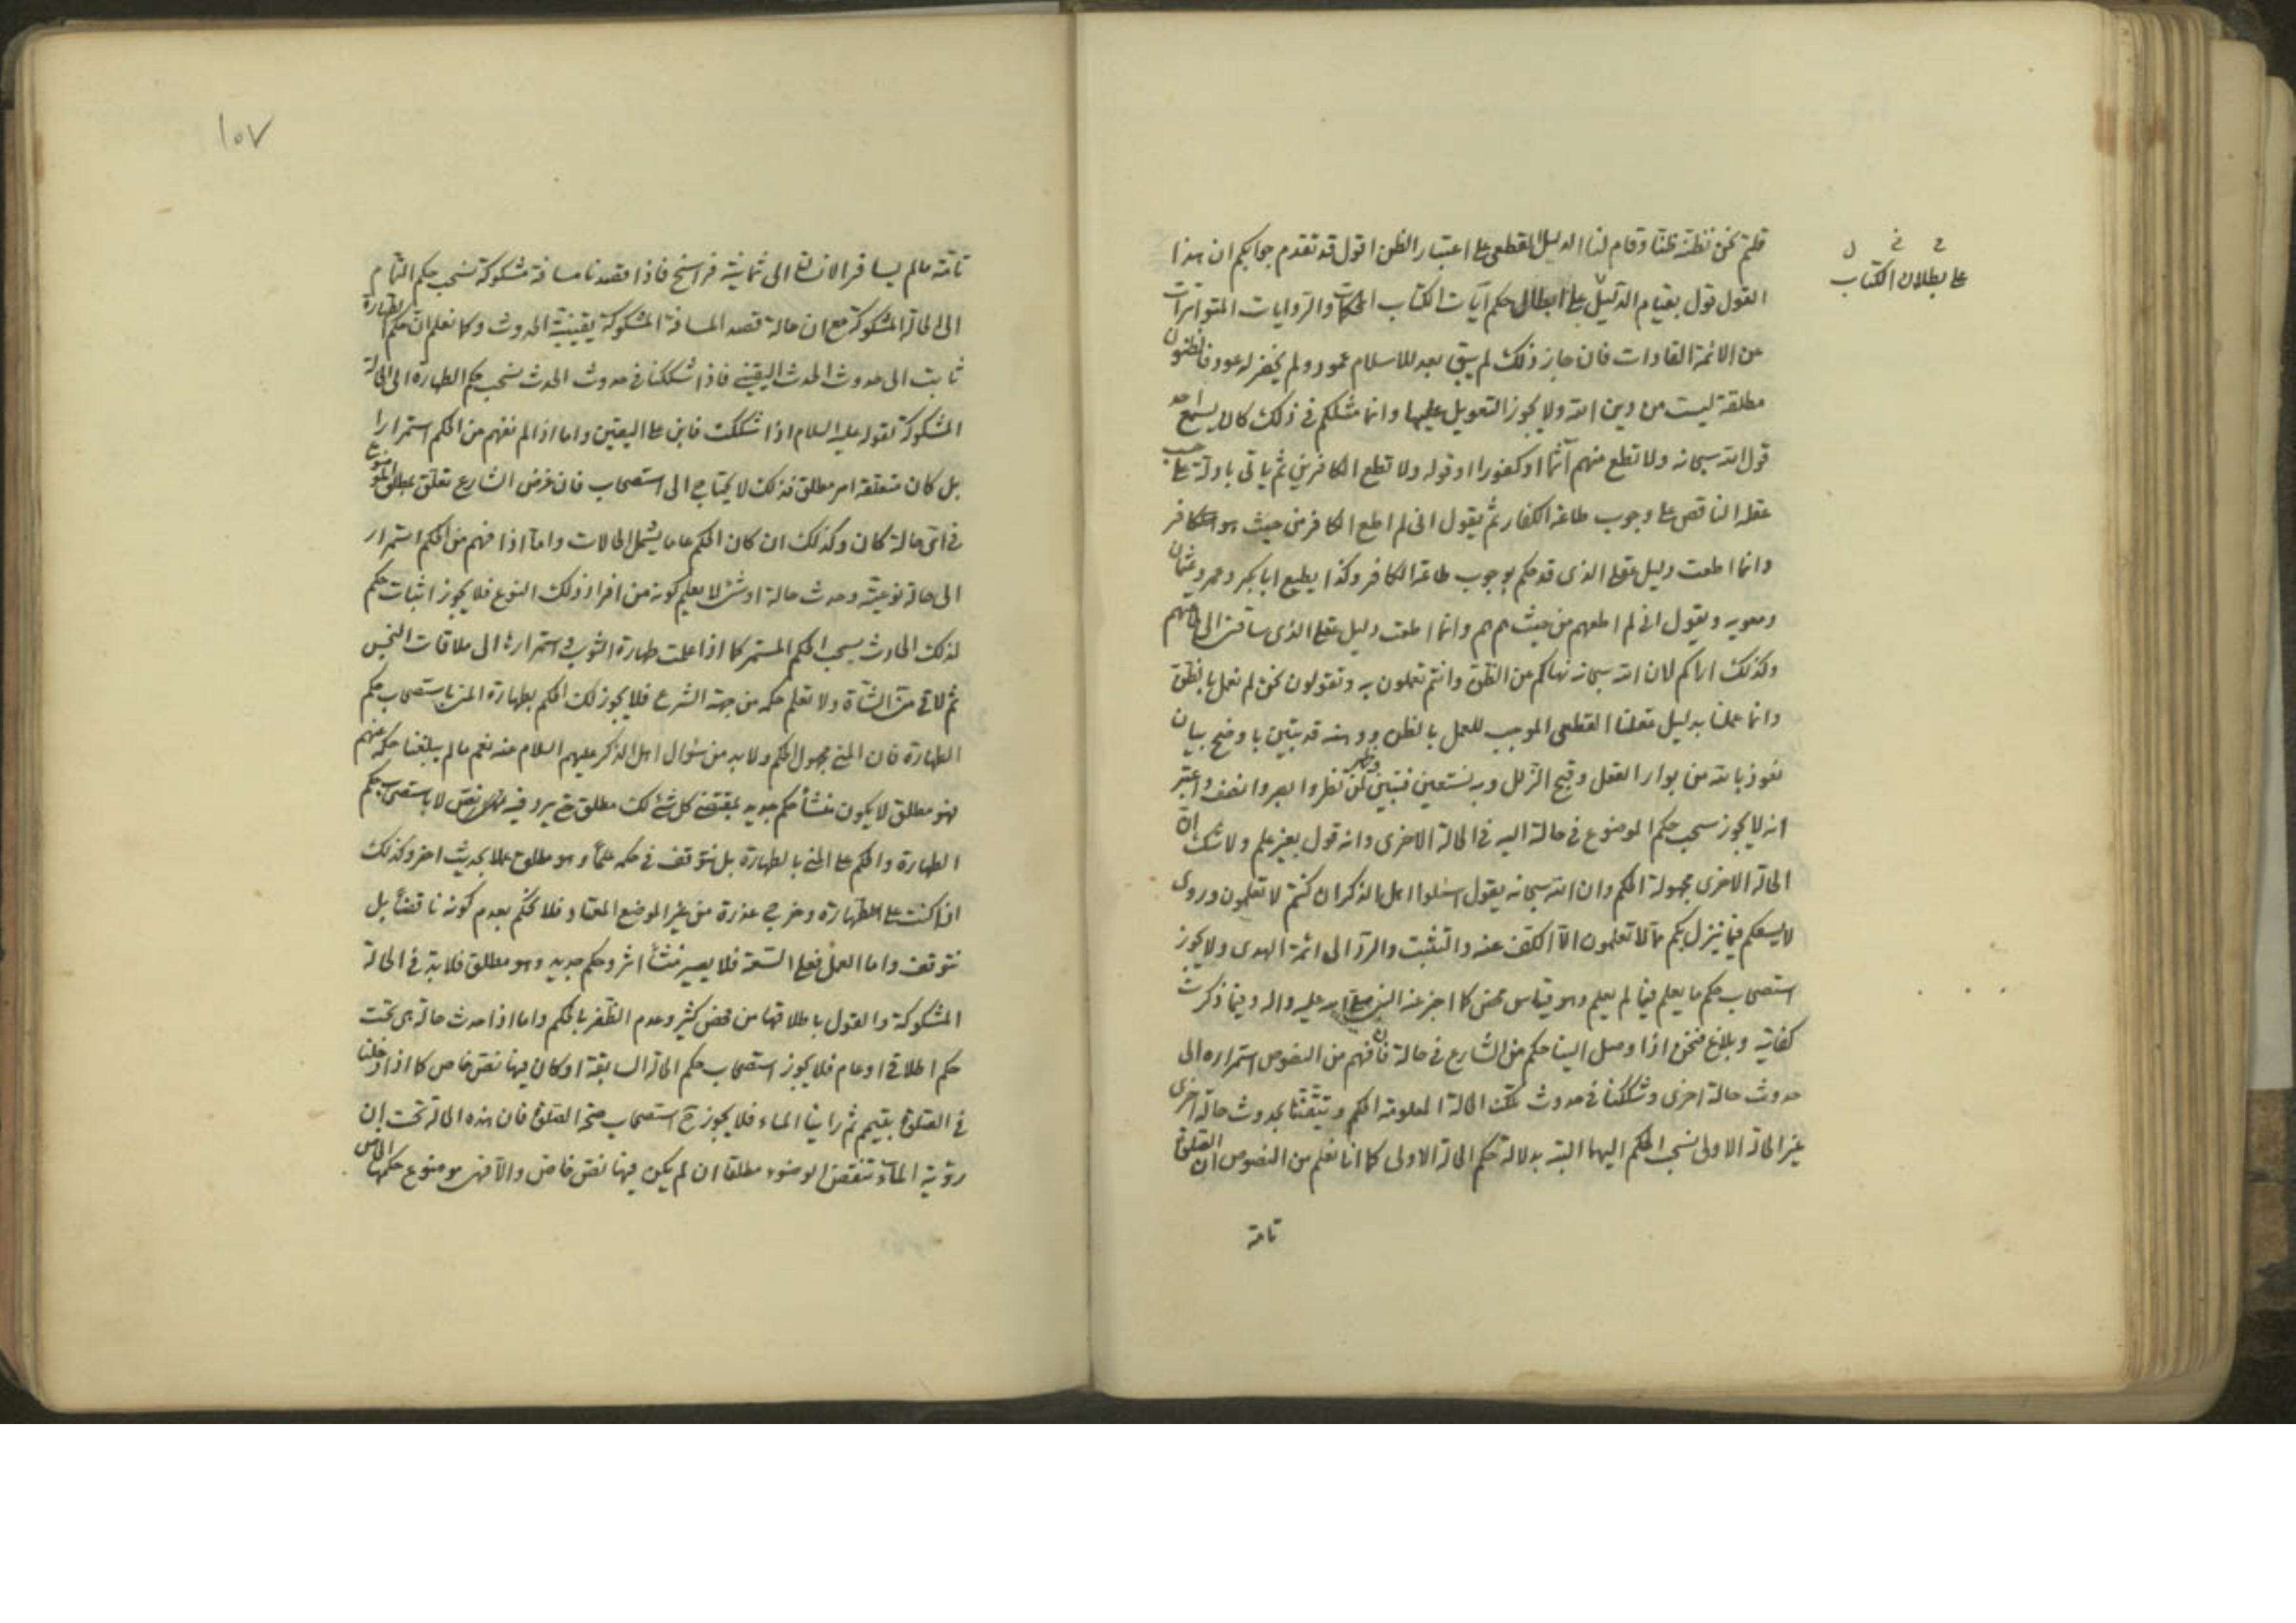 قلتم نحن نظنه ظنا وقام لنا الدليل القطعي على اعتبار الظن اقول قد تقدم جوابكم ان هذا
القول قول بقيام الدليل على ابطال حكم آيات الكتاب المحكمات والروايات المتواترات
عن الائمة القادات فان جاز ذلك لم يبق بعد للاسلام عمود ولم يخضر له عود فالظنون
مطلقة ليست من دين الله ولا يجوز التعويل عليها وانما مثلكم في ذلك كان يسمع احد
قول الله سبحانه ولا تطع منهم آثما او كفورا او قوله ولا تطع الكافرين ثم يأتي بادلة على حسب
عقله الناقص على وجوب طاعة الكفار ثم يقول اني لم اطع الكافر من حيث هو كافر
وانما اطعت دليل عقلي الذي قد حكم بوجوب طاعة الكافر وكذا يطيع ابا بكر وعمر وعثمان
ومعويه ويقول اني لم اطعهم من حيث هم هم وانما اطعت دليل عقلي الذي ساقني الى طاعتهم
وكذلك اراكم لان الله سبحانه نهاكم عن الظن وانتم تعملون به وتقولون نحن لم نعمل بالظن
وانما عملنا بدليل عقلنا القطعي الموجب للعمل بالظن ووهنه قد تبين باوضح بيان
نعوذ بالله من بوار العقل وقبح الزلل وبه نستعين فتبين وظهر لمن نظر وابصر وانصف واعتبر
انه لا يجوز سحب حكم الموضوع في حالة اليه في الحالة الاخرى وانه قول بغير علم ولا شك ان
الحالة الاخرى مجهولة الحكم وان الله سبحانه يقول اسئلوا اهل الذكر ان كنتم لا تعلمون وروي
لا يسعكم فيما ينزل بكم مما لا تعلمون الا الكف عنه والتثبت والرد الى ائمة الهدى ولا يجوز
استصحاب حكم ما يعلم فيما لم يعلم وهو قياس محض كما اخبر عنه النبي صلى الله عليه واله وفيما ذكرت
كفاية وبلاغ فنحن اذا وصل الينا حكم من الشارع في حالة فان فهم من النصوص استمراره الى
حدوث حالة اخرى وشككنا في حدوث تلك الحالة المعلومة الحكم وتيقنا بحدوث حالة اخرى
غير الحالة الاولى نسحب الحكم اليها البتة بدلالة حكم الحالة الاولى كما انا نعلم من النصوص ان الصلوة
تامة
على بطلان الكتاب
١٥٧
تامة ما لم يسافر الانسان الى ثمانية فراسخ فاذا قصدنا مسافة مشكوكة نسحب حكم التمام
الى الحالة المشكوكة مع ان حالة قصد المسافة المشكوكة يقينية الحدوث وكما نعلم ان حكم الطهارة
ثابت الى حدوث الحدث اليقيني فاذا شككنا في حدوث الحدث نسحب حكم الطهارة الى الحالة
المشكوكة لقوله عليه السلام اذا شككت فابن على اليقين واما اذا لم نفهم من الحكم استمرارا
بل كان متعلقه امر مطلق فذلك لا يحتاج الى استصحاب فان غرض الشارع تعلق بمطلق الموضوع
في اي حالة كان وكذلك ان كان الحكم عاما يشمل الحالات واما اذا فهم من الحكم استمرار
الى حالة نوعية وحدث حالة او شئ لا يعلم كونه من افراد ذلك النوع فلا يجوز اثبات حكم
لذلك الحادث بسحب الحكم المستمر كما اذا علمت طهارة الثوب واستمرارها الى ملاقات النجس
ثم لاقى مني الشاة ولا تعلم حكمه من جهة الشرع فلا يجوز لك الحكم بطهارة المني باستصحاب حكم
الطهارة فان المني مجهول الحكم ولا بد من سؤال اهل الذكر عليهم السلام عنه نعم ما لم يبلغنا حكمه عنهم
فهو مطلق لا يكون منشأ حكم جديد بمقتضى كل شئ لك مطلق حتى يرد فيه نص لا باستصحاب حكم
الطهارة والحكم على المني بالطهارة بل نتوقف في حكمه علما وهو مطلق عملا بحديث اخر وكذلك
اذا كنت على الطهارة وخرج عذرة من غير الموضع المعتاد فلا تحكم بعدم كونه ناقضا بل
نتوقف واما العمل فعلى السعة فلا يصير منشأ اثر وحكم جديد وهو مطلق فلا بد في الحالة
المشكوكة والقول باطلاقها من فحص كثير وعدم الظفر بالحكم واما اذا حدث حالة هي تحت
حكم اطلاقي او عام فلا يجوز استصحاب حكم الحالة السابقة او كان فيها نص خاص كما اذا دخلنا
في الصلوة بتيمم ثم راينا الماء فلا يجوز ح استصحاب صحة الصلوة فان هذه الحالة تحت ان
رؤية الماء تنقض الوضوء مطلقا ان لم يكن فيها نص خاص والا فهي موضوع حكمها الخاص